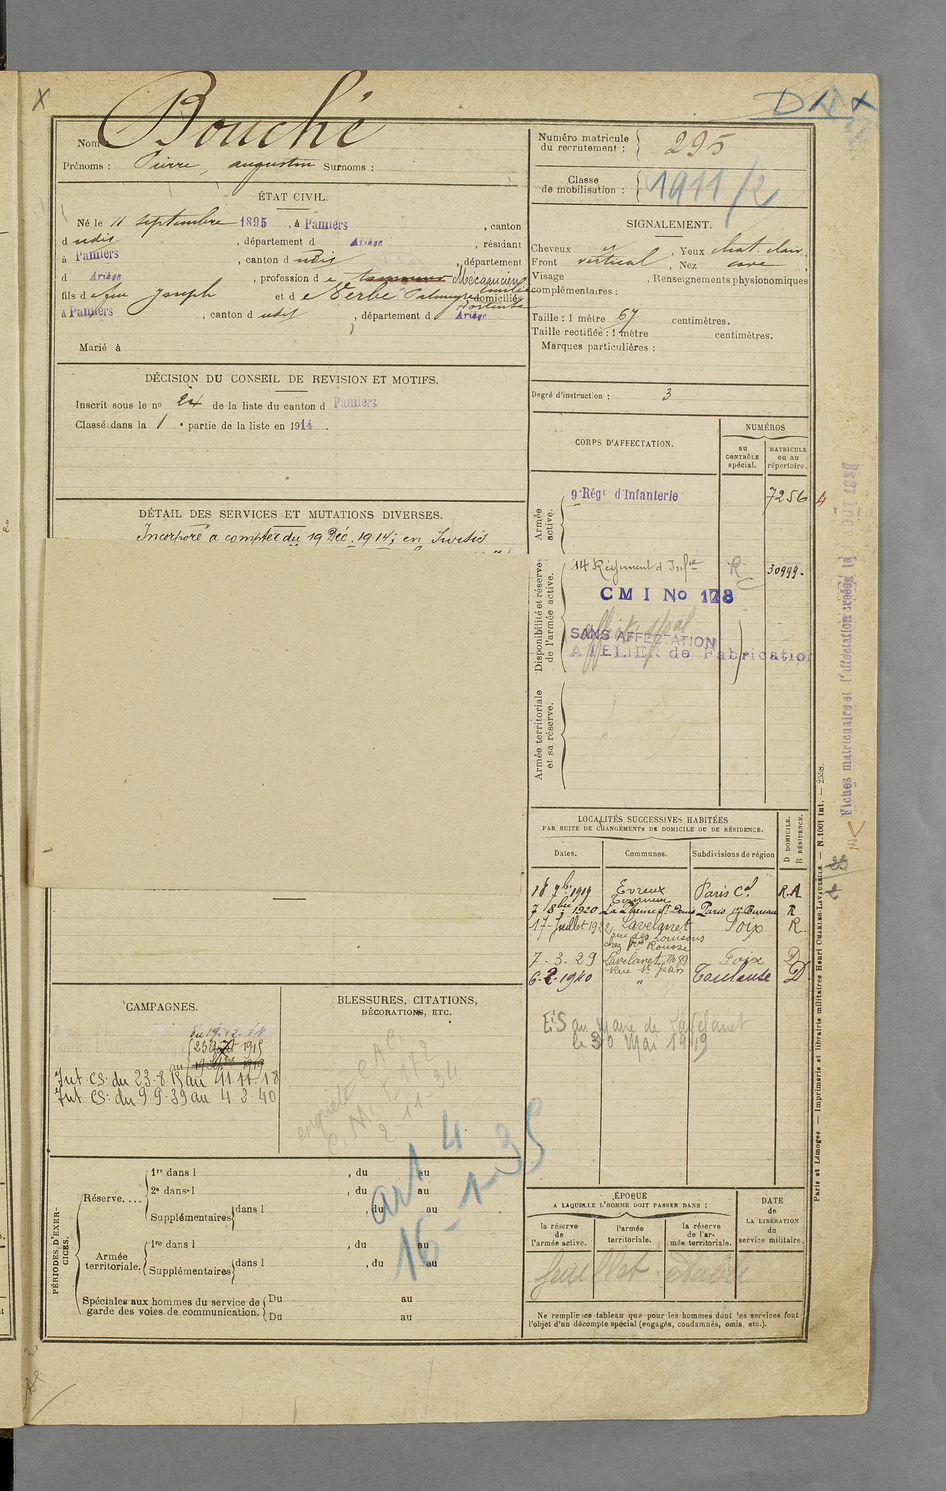 Bouché
Nom
Prénoms : Pierre, augustin Surnoms :
ÉTAT CIVIL.
Né le 11 septembre 1895, à Pamiers, canton
d udit, département d Ariège, résidant
à Pamiers, canton d udit, département
d Ariège, profession d e Mécanicien
fils d e feu Joseph et d e Zerbé Palmyre Emilie domiciliés
à Pamiers, canton d udit, département d Ariège
Marié à
DÉCISION DU CONSEIL DE REVISION ET MOTIFS.
Inscrit sous le no 24 de la liste du canton d Pamiers
Classé dans la 1e partie de la liste en 1914.
DÉTAIL DES SERVICES ET MUTATIONS DIVERSES.
Incorporé à compter du 19 Déc. 1914; en Sursis
CAMPAGNES.
du 19.12.14
23 Août 1915
au 19 Sept 1919
Int. CS: du 23-8-15 au 11-11-18
Int. CS: du 9 9-39 au 4 2-40
BLESSURES, CITATIONS,
DÉCORATIONS, ETC.
enquête C.A.C.
2-11-34
art 4
16-1-35
PÉRIODES D'EXERCICES.
Réserve....
1re dans l , du au
2e dans l , du au
Supplémentaires dans l , du au
Armée territoriale.
1re dans l , du au
Supplémentaires dans l , du au
Spéciales aux hommes du service de garde des voies de communication.
Du au
Du au
D
X
Numéro matricule du recrutement : 295
Classe de mobilisation : 1911/2
SIGNALEMENT.
Cheveux , Yeux chat. clair,
Front vertical, Nez cave,
Visage , Renseignements physionomiques
complémentaires :
Taille : 1 mètre 67 centimètres.
Taille rectifiée : 1 mètre centimètres.
Marques particulières :
Degré d'instruction : 3
CORPS D'AFFECTATION.
NUMÉROS
au CONTRÔLE spécial.
MATRICULE ou au répertoire.
Armée active.
9e Régt d'Infanterie
7256
Disponibilité et réserve de l'armée active.
14 Régiment d'Infie R 30999-
C M I No 178
SANS AFFECTATION
ATELIER de Fabrication
Armée territoriale et sa réserve.
LOCALITÉS SUCCESSIVES HABITÉES
PAR SUITE DE CHANGEMENTS DE DOMICILE OU DE RÉSIDENCE.
Dates. Communes. Subdivisions de région
D DOMICILE. R RÉSIDENCE.
18 7bre 1919 Evreux Paris Cal. R.A
7 8bre 1920 La Plaine St Denis Paris 1er Bureau R
17-Juillet 1922 Lavelanet Foix R.
chez Vve Rousse
7-3-29 Lavelanet Foix D
Rue St Jean
6-2-1940 " Toulouse D
EiS au Maire de Lavelanet
le 30 Mai 1949
ÉPOQUE
A LAQUELLE L'HOMME DOIT PASSER DANS :
DATE de LA LIBÉRATION du service militaire.
la réserve de l'armée active.
l'armée territoriale.
la réserve de l'armée territoriale.
feuillet établi
Ne remplir ce tableau que pour les hommes dont les services font
l'objet d'un décompte spécial (engagés, condamnés, omis, etc.).
Fiches matriculaire et d'affectation créées le AOUT 1927
Paris et Limoges. — Imprimerie et librairie militaires Henri CHARLES-LAVAUZELLE. — N. 1001 int. — 2558.